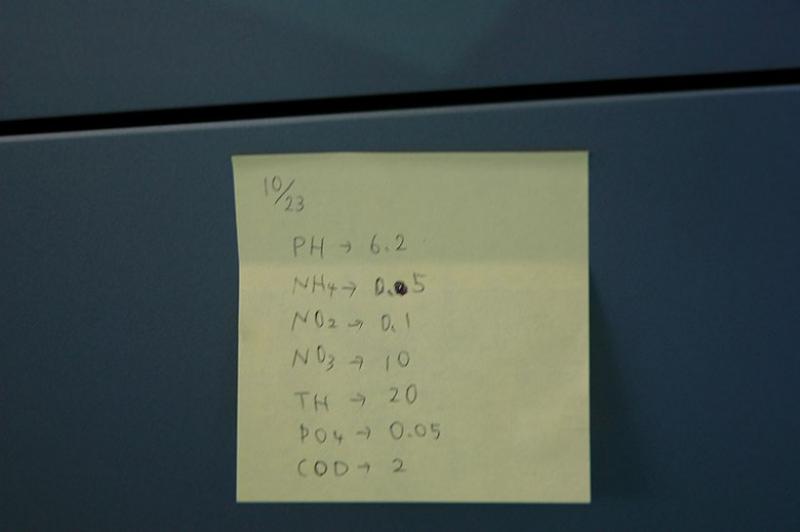 10/23
PH → 6.2
NH4 → 0.5
NO2 → 0.1
NO3 → 10
TH → 20
PO4 → 0.05
COD → 2